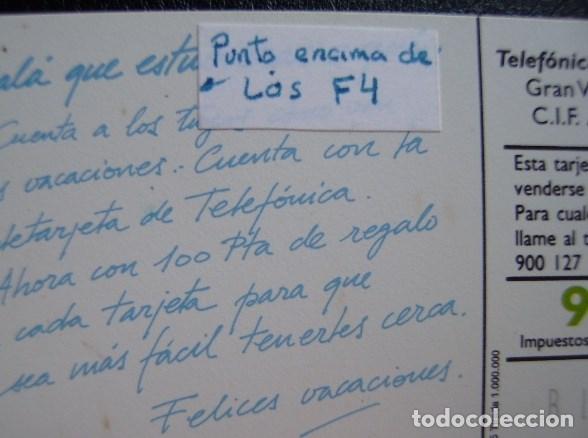 Punto encima de
Los F4
que
Cuenta a los
vacaciones.. Cuenta con la
de Telefónica.
Ahora con 100 Pta de regalo
cada tarjeta para que
sea más fácil tenertes cerca.
Felices vacaciones.
Telefónic
Gran V
C.I.F.
Esta tarje
venderse
Para cual
llame al t
900 127
9
Impuestos
1.000.000
todocoleccion